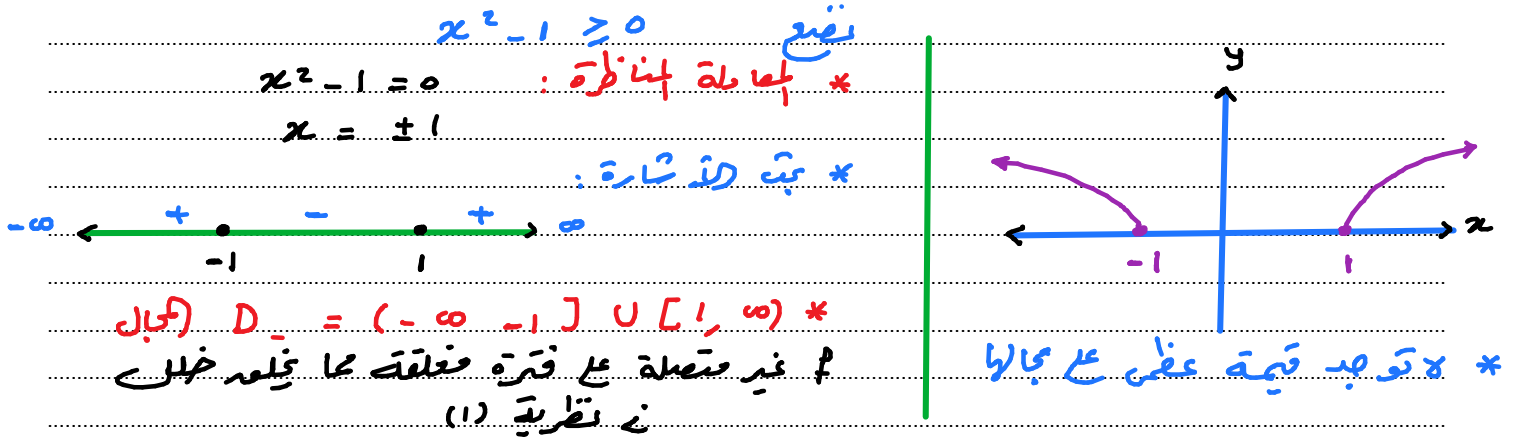 نضع x² - 1 ≥ 0
* المعادلة المناظرة : x² - 1 = 0
x = ± 1
* بحث الإشارة :
-∞ + - + ∞
-1 1
* المجال D = (-∞ -1] ∪ [1, ∞)
f غير متصلة على فترة مغلقة مما يخلق خلل
في نظرية (1)
y
x
-1 1
* لا توجد قيمة عظمى على مجالها